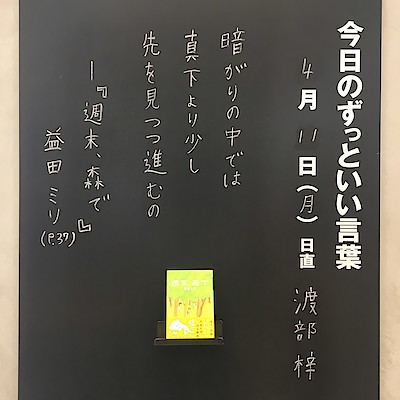 今日のずっといい言葉
4月11日(月)日直 渡部 梓
暗がりの中では
真下より少し
先を見つつ進むの
―『週末、森で』
益田ミリ(P.37)
週末、森で